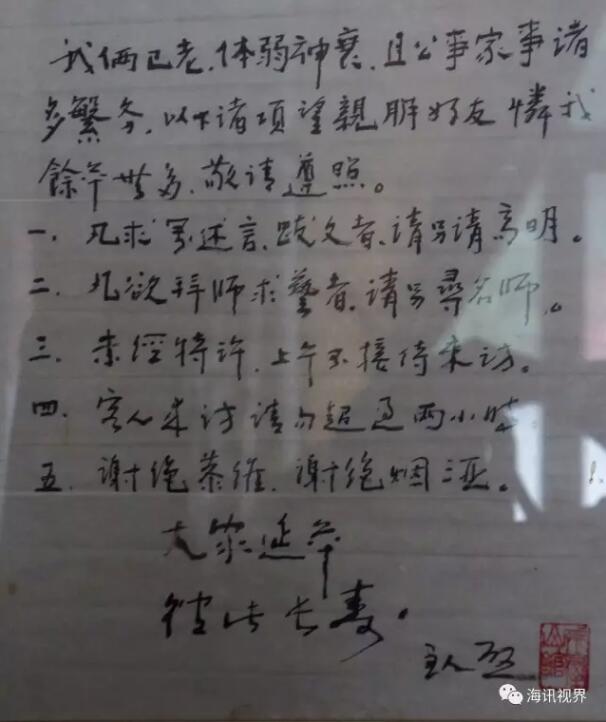 我俩已老,体弱神衰,且公事家事诸
多繁务,以下诸项望親朋好友憐我
餘年無多,敬请遵照。
一.凡求写述言、跋文者,请另请高明。
二.凡欲拜师求藝者,请另尋名师。
三.未经特许,上午不接待来访。
四.客人来访请勿超过两小時
五.谢绝恭维,谢绝烟酒。
大家延年
彼此长寿。
主人 启
海讯视界